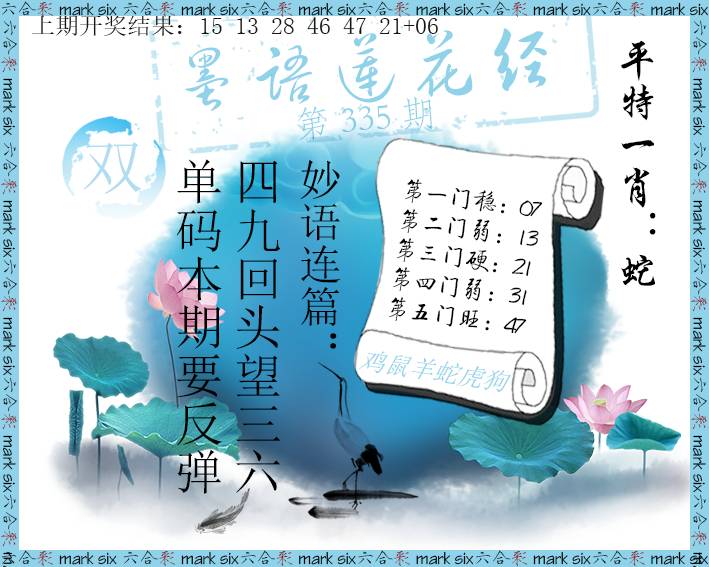 上期开奖结果：15 13 28 46 47 21+06
墨语莲花经
第 335 期
双
平特一肖：蛇
妙语连篇：
四九回头望三六
单码本期要反弹
第一门稳：07
第二门弱：13
第三门硬：21
第四门弱：31
第五门旺：47
鸡鼠羊蛇虎狗
六合彩 mark six 六合彩 mark six 六合彩 mark six 六合彩 mark six 六合彩 mark six 六合彩